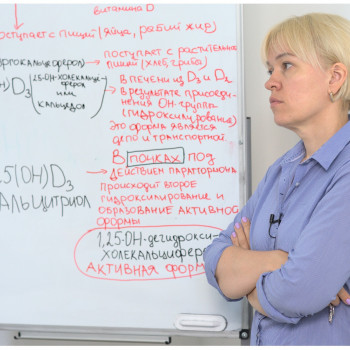 витамина D
оступает с пищей (яйца, рыбий жир)
ргокальциферол) → поступает с растительн
пищей (хлеб, грибы)
H)D₃ (25-OH-холекальци-
ферол
или
кальцедол)
→ в печени из D₃ и D₂
в результате присоеди-
нения OH-группы
(гидроксилирование)
Это форма является
депо и транспортной
25(OH)D₃
АЛЬЦИТРИОЛ
В почках под
→ действием паратгормона
происходит второе
гидроксилирование и
образование активной
формы
1,25-OH-дегидрокси-
холекальцифер
АКТИВНАЯ ФОРМ